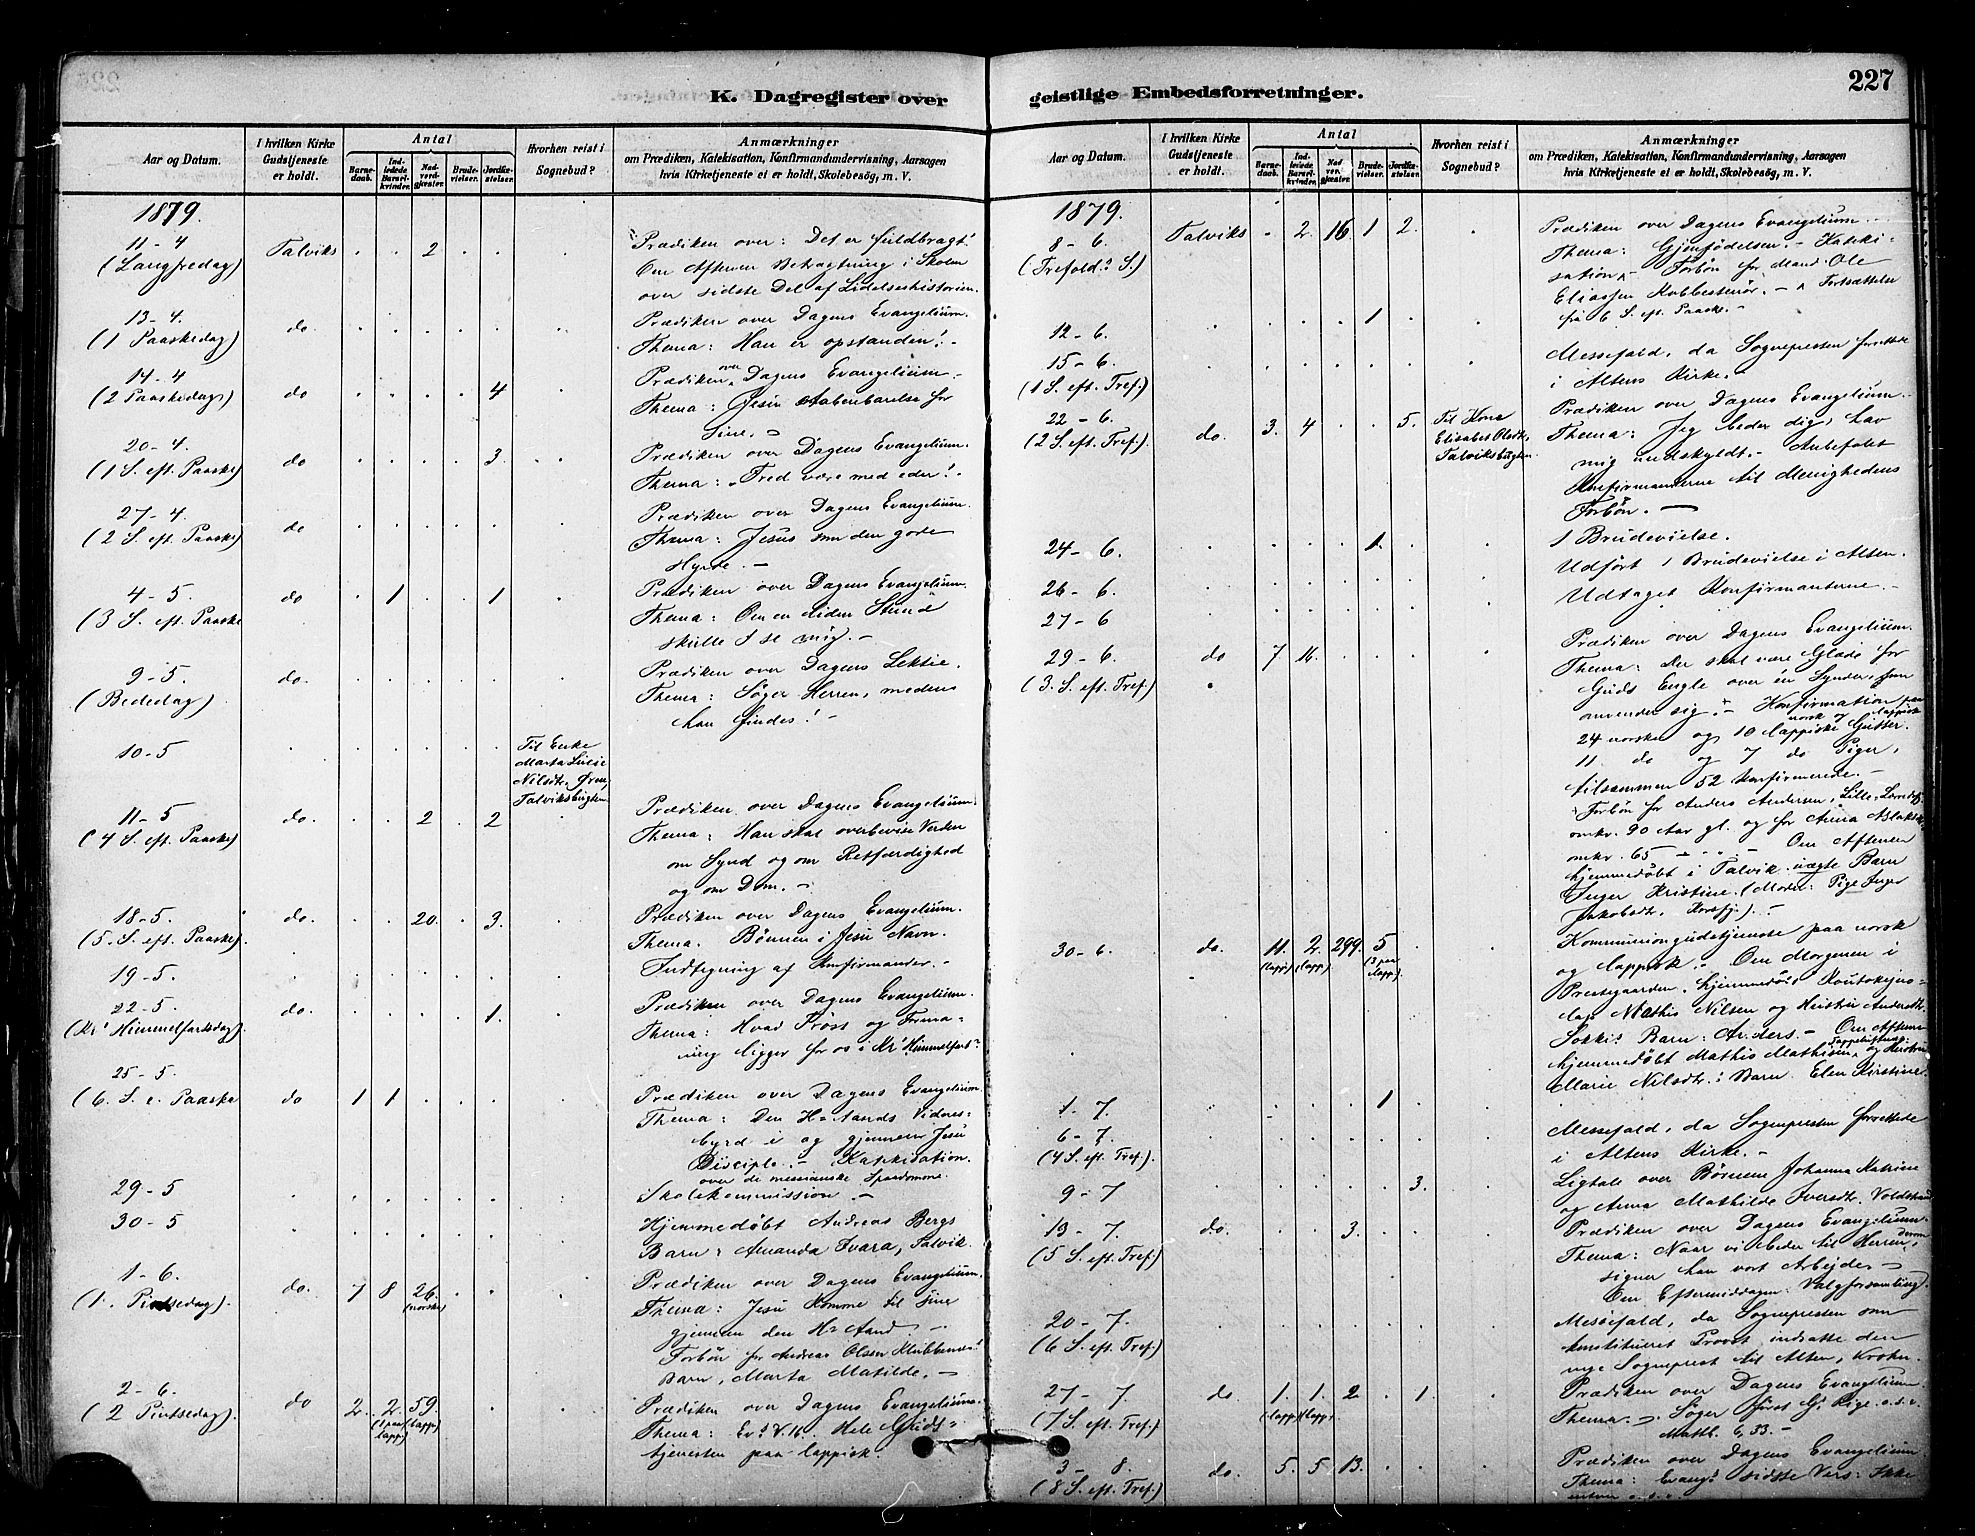 227
K. Dagregister over
geistlige Embedsforretninger.
Aar og Datum.
I hvilken Kirke Gudstjeneste er holdt.
Antal
Barnedaab.
Indledede Barselkvinder.
Nadvergjæster.
Brudevielser.
Jordfæstelser.
Hvorhen reist i Sognebud?
Anmærkninger
om Prædiken, Katekisation, Konfirmandundervisning, Aarsagen
hvis Kirketjeneste ei er holdt, Skolebesøg, m. V.
1879.
11-4 Talviks . . 2 . . . Prædiken over: Det er fuldbragt!
(Langfredag) Om Aftenen Betragtning i Skolen
over sidste Del af Lidelseshistorien.
13-4. do. . . . . . . Prædiken over Dagens Evangelium.
(1 Paaskedag) Thema: Han er opstanden! -
14-4 do . . . . 4 . Prædiken over Dagens Evangelium.
(2 Paaskedag) Thema: Jesu Aabenbarelse for
Sine. -
20-4. do . . . . 3. . Prædiken over Dagens Evangelium.
(1 S. eft. Paaske) Thema: "Fred være med eder"! -
27-4. do . . . . . . Prædiken over Dagens Evangelium.
(2 S. eft. Paaske) Thema: Jesus som den gode
Hyrde. -
4-5. do . 1 . . 1 . Prædiken over Dagens Evangelium.
(3 S. eft. Paaske Thema: Om en liden Stund
skulle I se mig. -
9-5. do. . . . . . Prædiken over Dagens Lektie.
(Bededag) Thema: Søger Herren, medens
han findes! -
10-5 . . . . . . Til Enke
Marta Lisie
Nilsdtr. Øren,
Talviksbugten
11-5 do. . . 2 . 2 . Prædiken over Dagens Evangelium.
(4 S. eft. Paaske) Thema: Han skal overbevise Verden
om Synd og om Retfærdighed
og om Dom. -
18-5. do. . . 20. . 3. . Prædiken over Dagens Evangelium.
(5. S. eft. Paaske). Thema. Bønnen i Jesu Navn.
19-5. Indtegning af Konfirmander. -
22-5. do. . . . . 1. . Prædiken over Dagens Evangelium.
(Kr. Himmelfartsdag). Thema: Hvad Trøst og Forma-
ning ligger for os i Kr. Himmelfart?
25-5.
(6. S. e. Paaske do 1 1 . . . . Prædiken over Dagens Evangelium.
Thema: Den H. Aands Vidnes-
byrd i og gjennem Jesu
Disciple. - Katekisation.
over de messianske Spaadomme.
29-5 . . . . . . Skolekommission. -
30-5 . . . . . . Hjemmedøbt Andreas Bergs
Barn: Amanda Ivara, Talvik.
1-6. do. 7 8 26. . . . Prædiken over Dagens Evangelium.
(1. Pintsedag). (norske) Thema: Jesu Komme til sine
gjennem den H. Aand -
Forbøn for Andreas Olsen
Barn, Marta Matilde. -
2-6. do 2. 2. 59. . . Prædiken over Dagens Evangelium.
(2 Pintsedag). (1 paa lapp.) (lapp.) Thema: Ev. V. 16. Hele Guds-
tjenesten paa lappisk.
Aar og Datum.
I hvilken Kirke Gudstjeneste er holdt.
Antal
Barnedaab.
Indledede Barselkvinder.
Nadvergjæster.
Brudevielser.
Jordfæstelser.
Hvorhen reist i Sognebud?
Anmærkninger
om Prædiken, Katekisation, Konfirmandundervisning, Aarsagen
hvis Kirketjeneste ei er holdt, Skolebesøg, m. V.
1879.
8-6. Talviks - 2. 16. 1 2. . Prædiken over Dagens Evangelium.
(Trefold. S.) Thema: Gjenfødelsen. - Kateki-
sation. - Forbøn for Mand Ole
Eliassen - Fortsættelse
fra 6 S. eft. Paaske. -
12-6. . . . . 1 . .
15-6. Messefald, da Sognepresten forrettede
(1 S. eft. Tref.) i Altens Kirke. -
22-6. do. 3. 4 . . 5. Til Kone
Elisabet Olsdtr.
Talviksbugten
Prædiken over Dagens Evangelium.
(2 S. eft. Tref.) Thema: Jeg beder dig, hav
mig undskyldt. - Anbefalet
Konfirmanterne til Menighedens
Forbøn. -
24-6. . . . . 1. . . 1 Brudevielse.
26-6. Udført 1 Brudevielse i Alten.
27-6 Udtaget Konfirmanterne. -
29-6. do 7 16. . . . . Prædiken over Dagens Evangelium.
(3. S. eft. Tref.) Thema: Der skal være Glæde for
Guds Engle over en Synder, som
omvender sig. - Konfirmation paa
norsk og lappisk
24 norske og 10 lappiske Gutter.
11 do og 7 do Piger,
tilsammen 52 Konfirmerede. -
Forbøn for Anders Andersen, Lille
omkr. 90 Aar gl. og for Anna
omkr. 65 - " - Om Aftenen
hjemmedøbt i Talvik uægte Barn
Inger Kristine. (Moder: Pige Inger
Jakobsdtr. Korsfj.). -
30-6. do. 11. 2. 299. 5 . . Kommuniongudstjeneste paa norsk
(lapp) (lapp) (3 paa lapp.) og lappisk. - Om Morgenen i
Prestegaarden hjemmedøbt Koutokejno-
lap Mathis Nilsen og Hustru Andersdtr.
Sokkis Barn: Anders. - Om Aftenen
hjemmedøbt Mathis Mathisen og Hustru
Marie Nilsdtr.s Barn. Elen Kirstine.
1-7. - . . 1 . .
6-7. Messefald, da Sognepresten forrettede
(4 S. eft. Tref.). i Altens Kirke. -
9-7 . . . . . 3. . Ligtale over Børnene Johanna Katrine
og Anna Mathilde Iversdtr. Voldstrand
13-7. do. . . 3. . . . Prædiken over Dagens Evangelium.
(5 S. eft. Tref.) Thema: Naar vi beder til Herren derom
signer han vort Arbejde. -
Om Eftermiddagen: Valgforsamling.
20-7. Messefald, da Sognepresten som
(6 S. eft. Tref.) konstitueret Provst indsatte den
nye Sogneprest til Alten,
27-7 do 1. 1. 2 . 1. . Prædiken over Dagens Evangelium.
(7. S. eft. Tref.) (lapp) (lapp.) Thema: - Søger først G. Rige. o.s.v.
Matth. 6, 33. -
3-8. do. 5. 5 13. . . . Prædiken over Dagens Evangelium
(8 S. eft. Tref.) Thema: Evang.s sidste Vers: Ikke
enhver o.s.v.